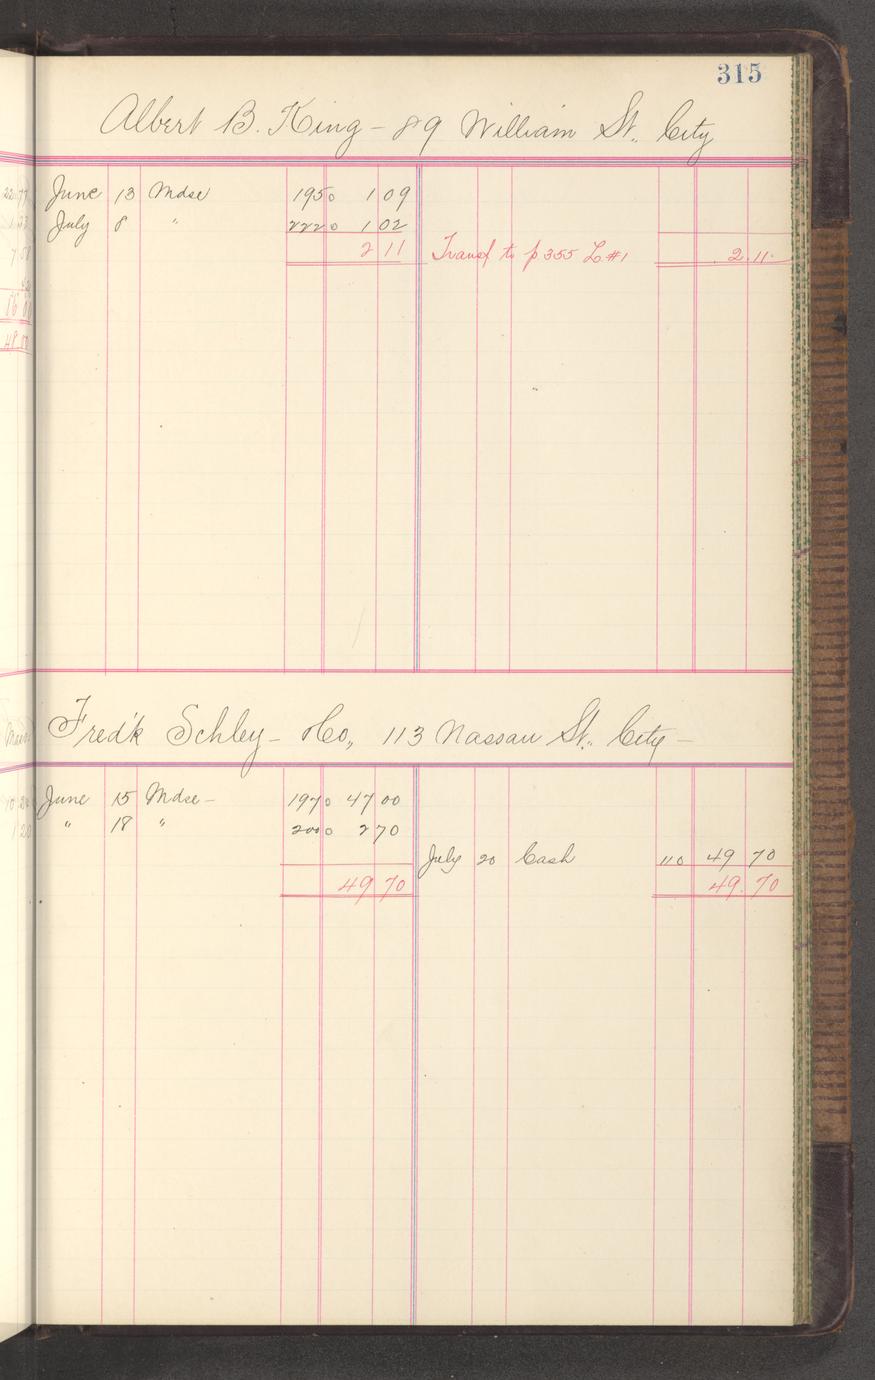 315
Albert B. King - 89 William St. City
June 13 Mdse 1950 1 09
July 8 " 2220 1 02
2 11 Transf to p 355 L #1 2.11
Fred'k Schley - Co., 113 Nassau St. City -
June 15 Mdse - 1970 47 00
" 18 " 2000 2 70
July 20 Cash 110 49 70
49 70 49.70